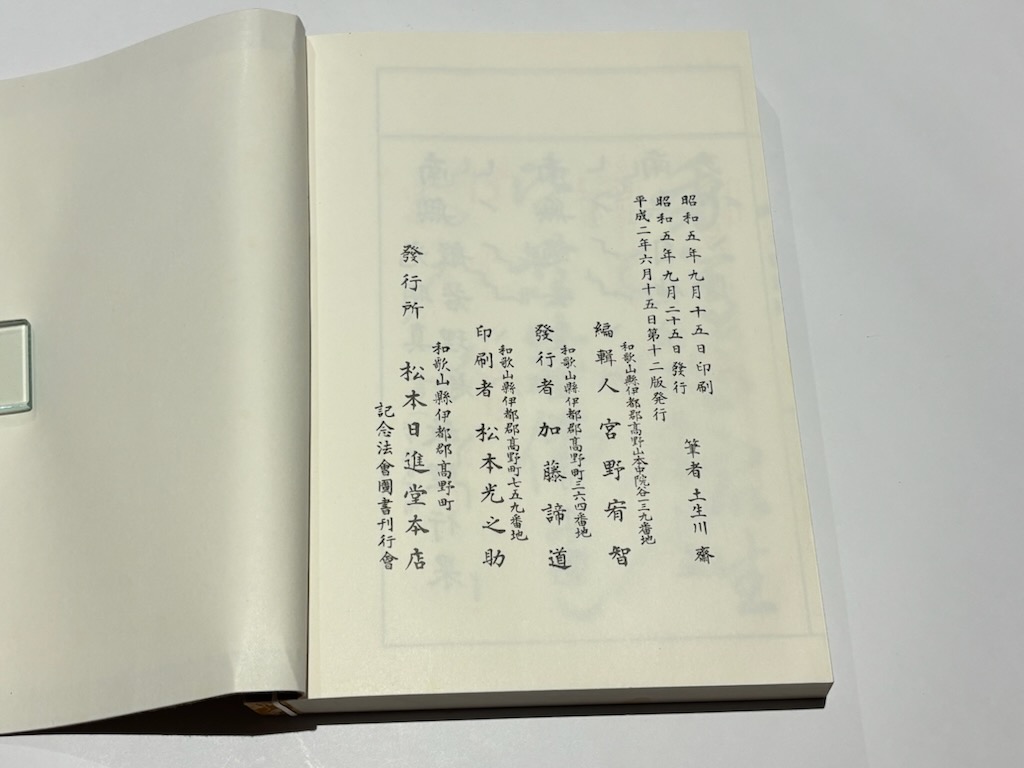 昭和五年九月十五日印刷
昭和五年九月二十五日發行
平成二年六月十五日第十二版発行
筆者 土生川 齋
和歌山縣伊都郡高野山本中院谷一三九番地
編輯人 宮野宥智
和歌山縣伊都郡高野町三六四番地
發行者 加藤諦道
和歌山縣伊都郡高野町七五九番地
印刷者 松本光之助
和歌山縣伊都郡高野町
發行所 松本日進堂本店
記念法會圖書刊行會